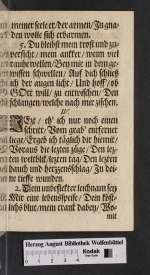 meiner seele er/der armen/Jn gna-
den wolle sich erbarmen.
5. Du bleibst mein trost und zu-
versicht / mein ancker / wenn viel
Bey mir in dem ge-
wissen schwellen / Auf dich schließ
ich der augen licht / Und hoff /
GOtt will / zu entwischen / Den
schlangen / welche nach mir zischen.
IV.
ich nur noch einen
schritt / Vom grab' entfernet
liege / Ergeb ich täglich die
Voraus die lezten züge / Den lez-
ten weltblik / lezten tag / Den lezten
hauch und herzenschlag / Jn dei-
ne tieffe wunden.
2. Dein unbeflekter leichnam sey
Mir eine lebensspeise / Dein
blut / mein trank dabey / Wo-
mit
Herzog August Bibliothek Wolfenbüttel
Kodak